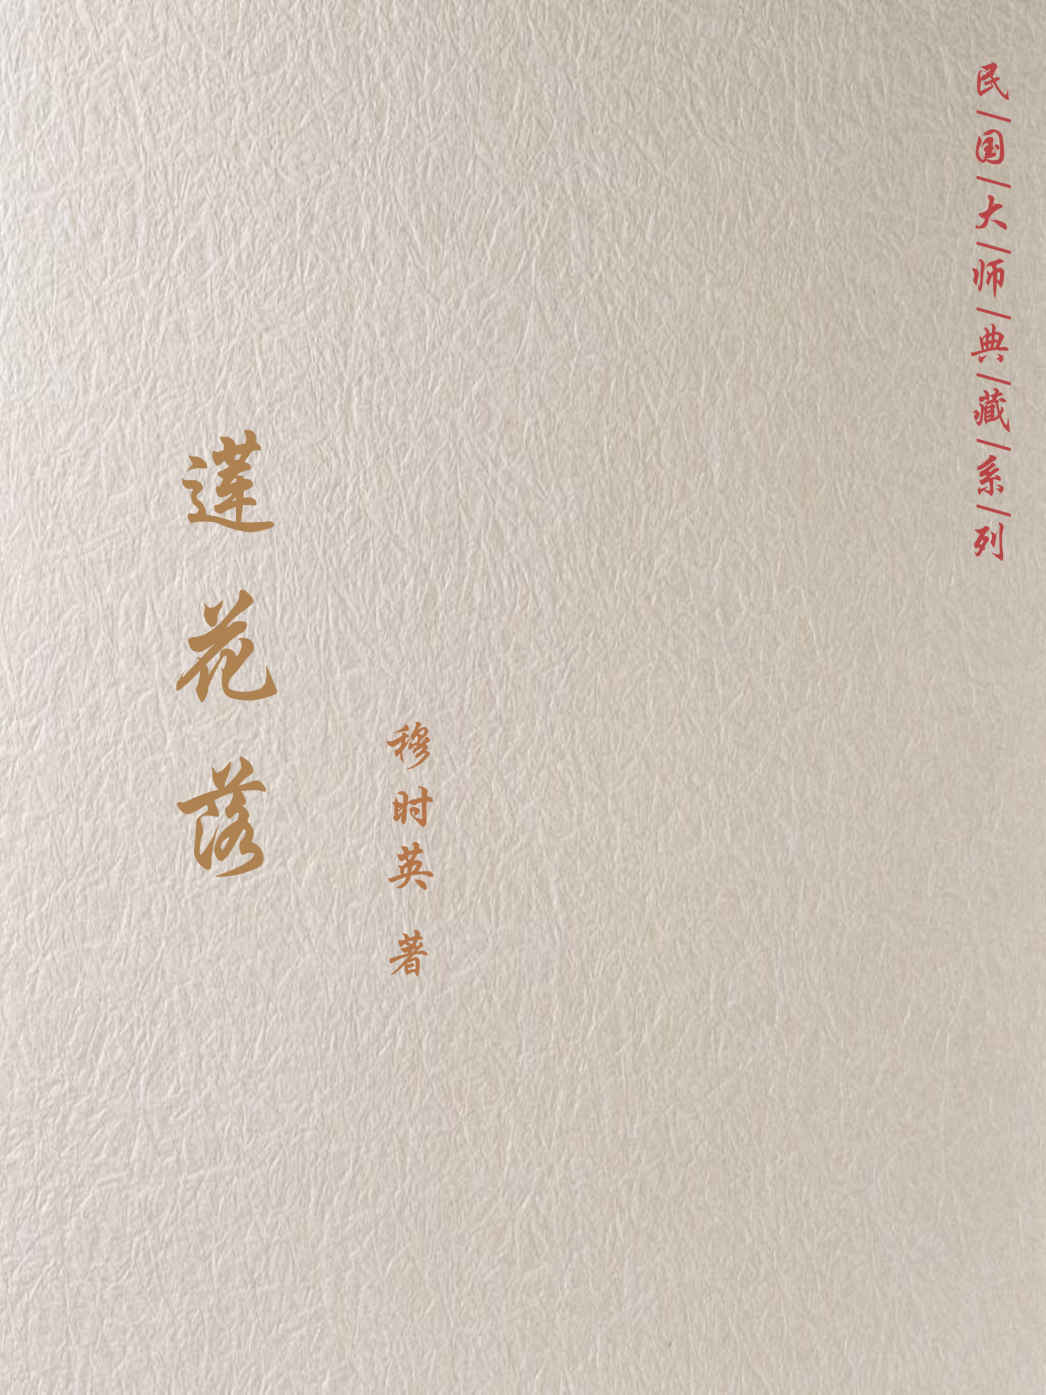 民/国/大/师/典/藏/系/列
莲花落
穆时英 著